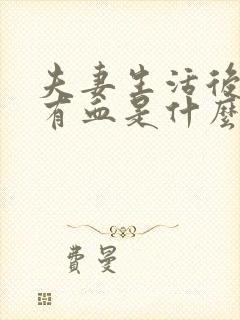 夫妻生活後
有血是什麼
費曼